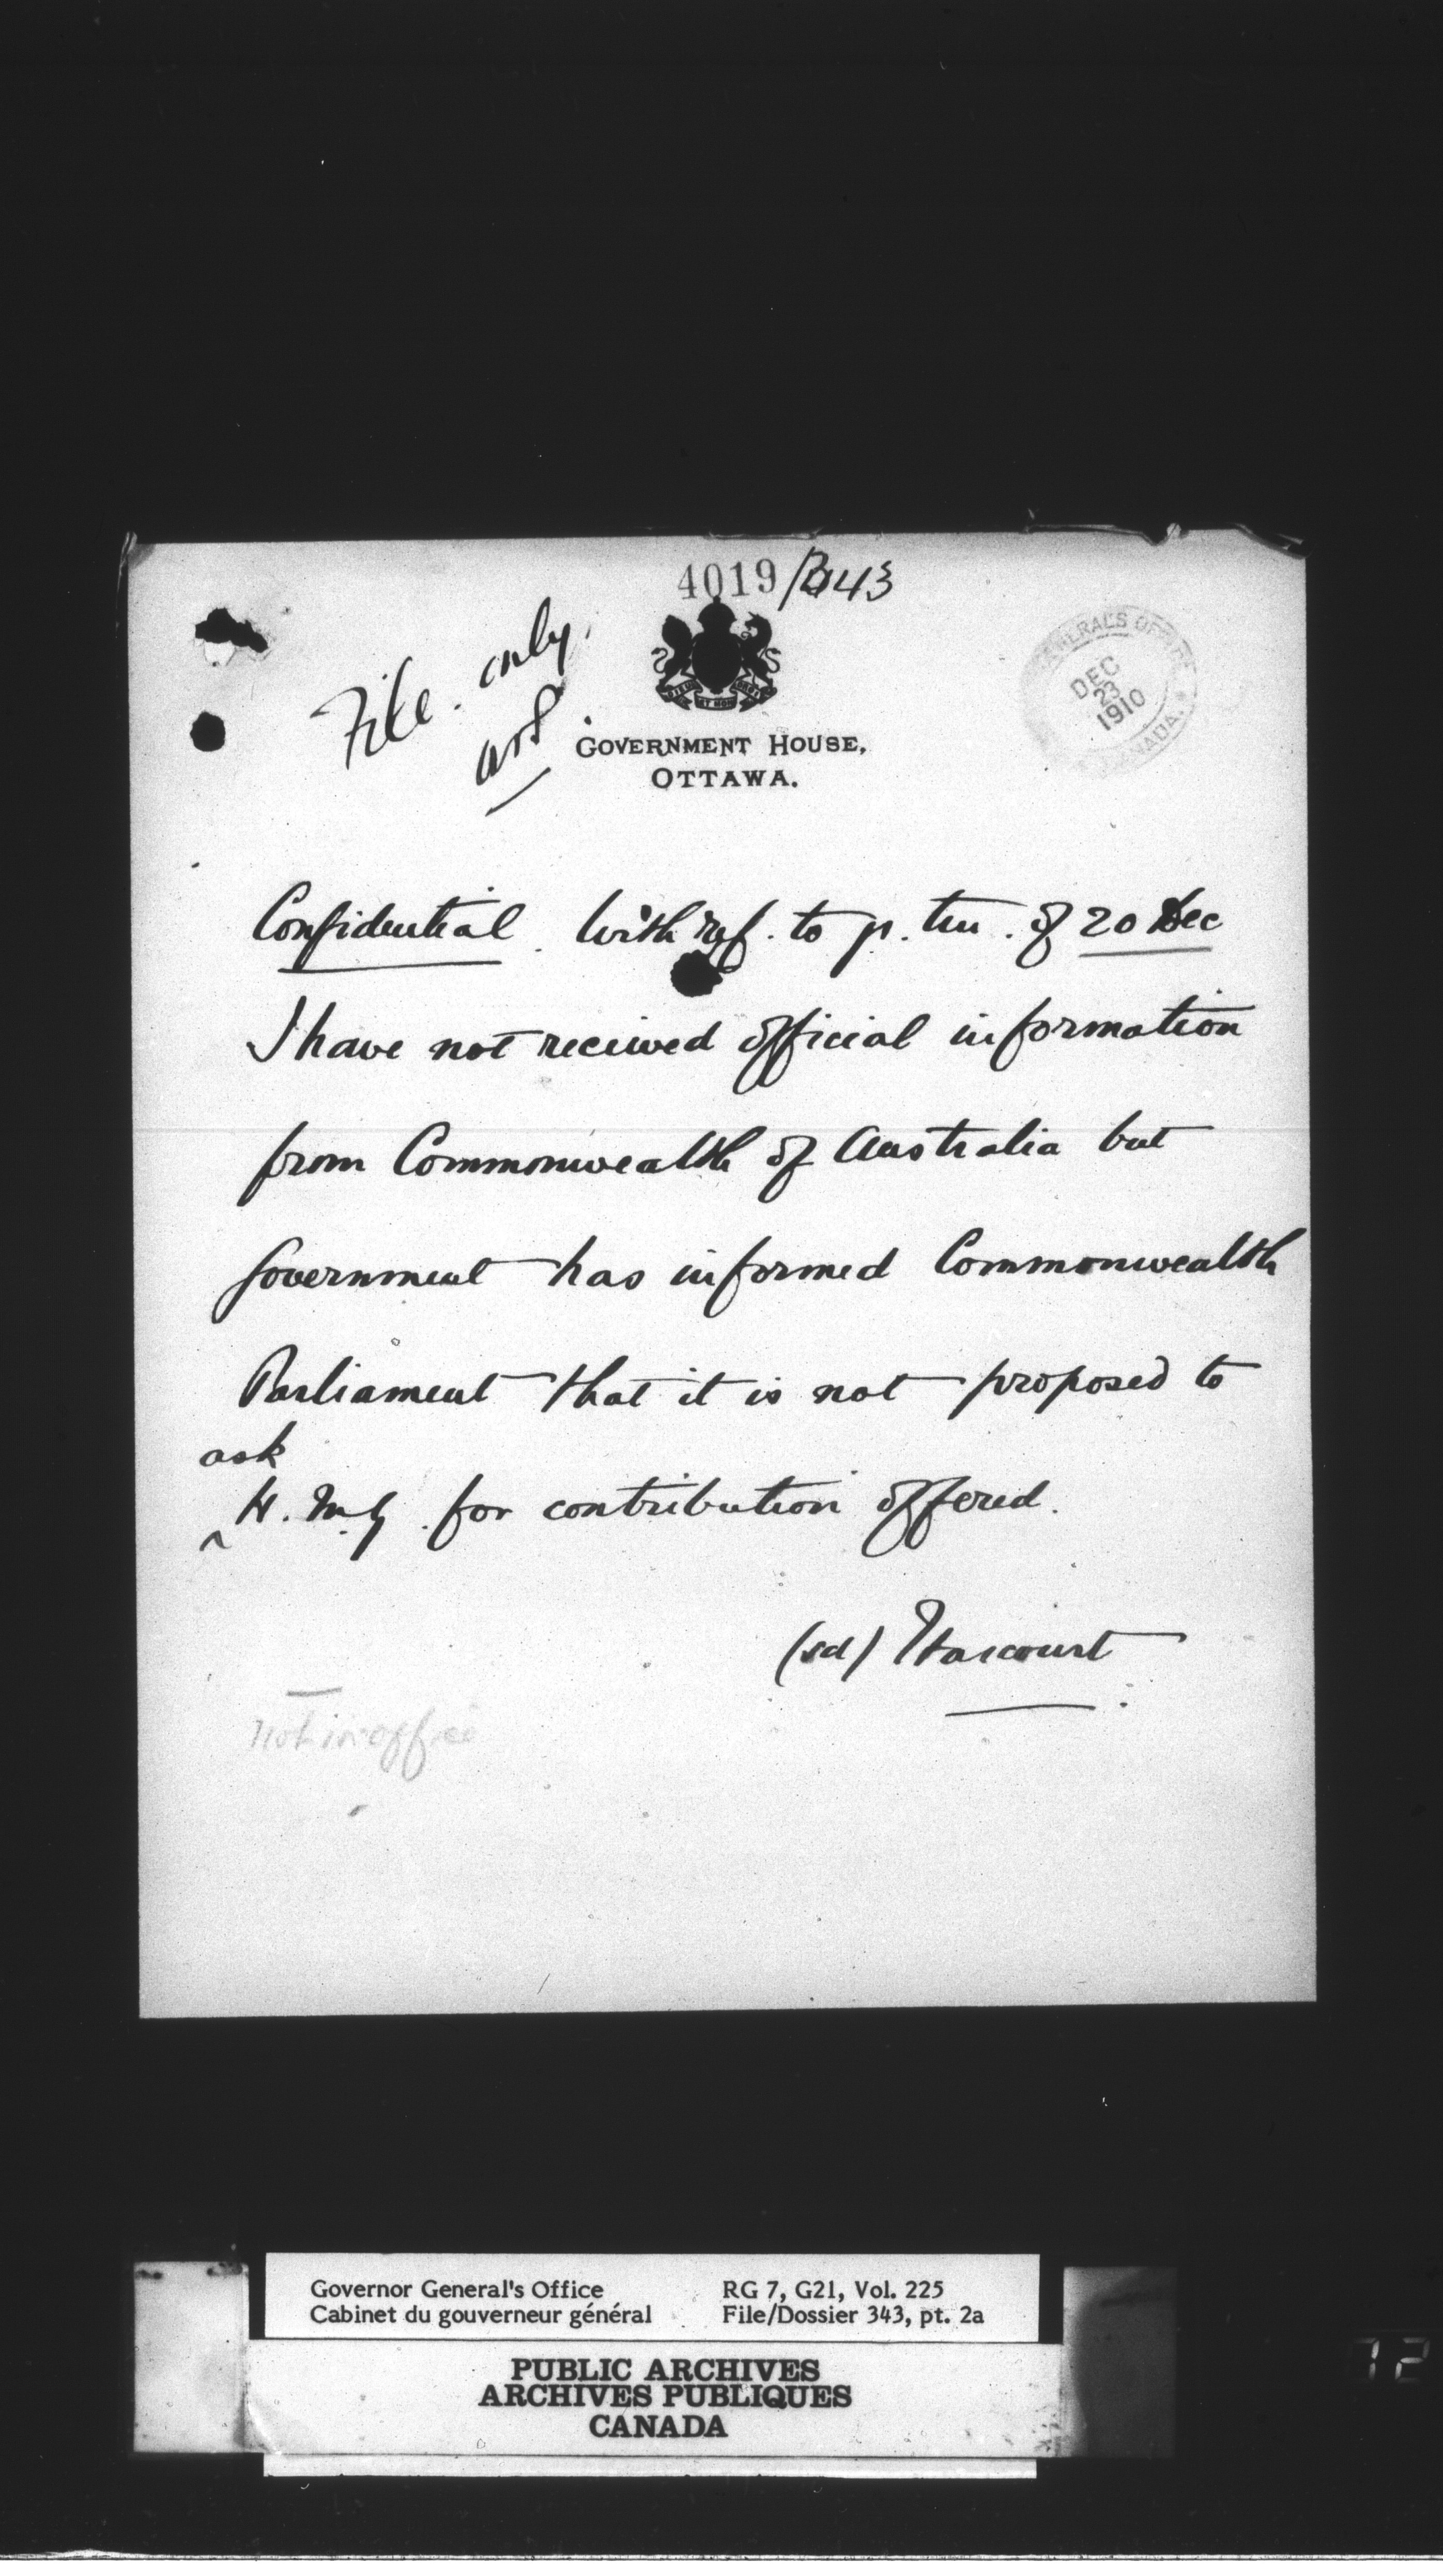 4019
File only.
GOVERNMENT HOUSE,
OTTAWA.
GENERAL'S OFFICE
DEC
23
1910
CANADA.
Confidential. With ref. to p. tm. of 20 Dec
I have not received official information
from Commonwealth of Australia but
Government has informed Commonwealth
Parliament that it is not proposed to
ask
H. M. G. for contribution offered.
(sd) Harcourt
not in office
Governor General's Office
Cabinet du gouverneur général
RG 7, G21, Vol. 225
File/Dossier 343, pt. 2a
PUBLIC ARCHIVES
ARCHIVES PUBLIQUES
CANADA
12